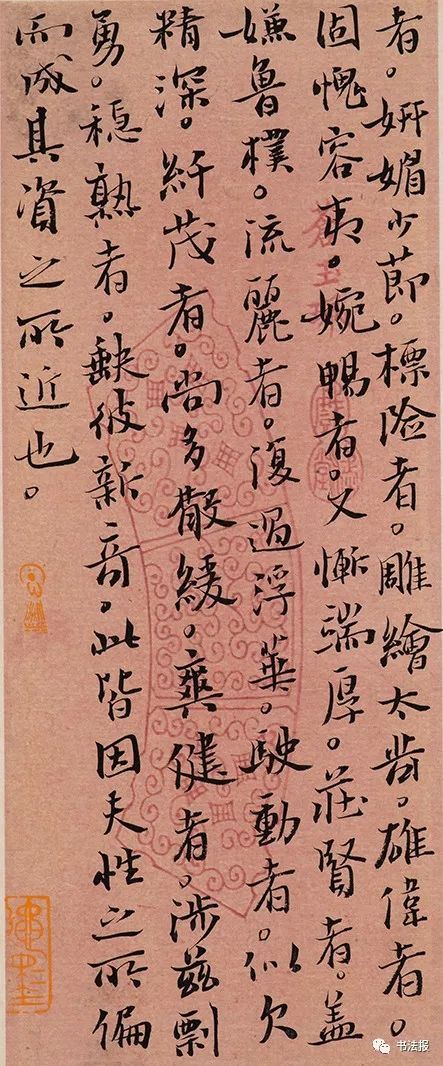 者。妍媚少節。標险者。雕繪太苛。雄偉者。
固愧容夷。婉暢者。又慚端厚。莊賢者。盖
嫌魯樸。流麗者。復過浮華。駛動者。似欠
精深。纤茂者。尚多散緩。爽健者。涉茲剽
勇。穩熟者。缺彼新奇。此皆因夫性之所偏
而成其資之所近也。
书法报